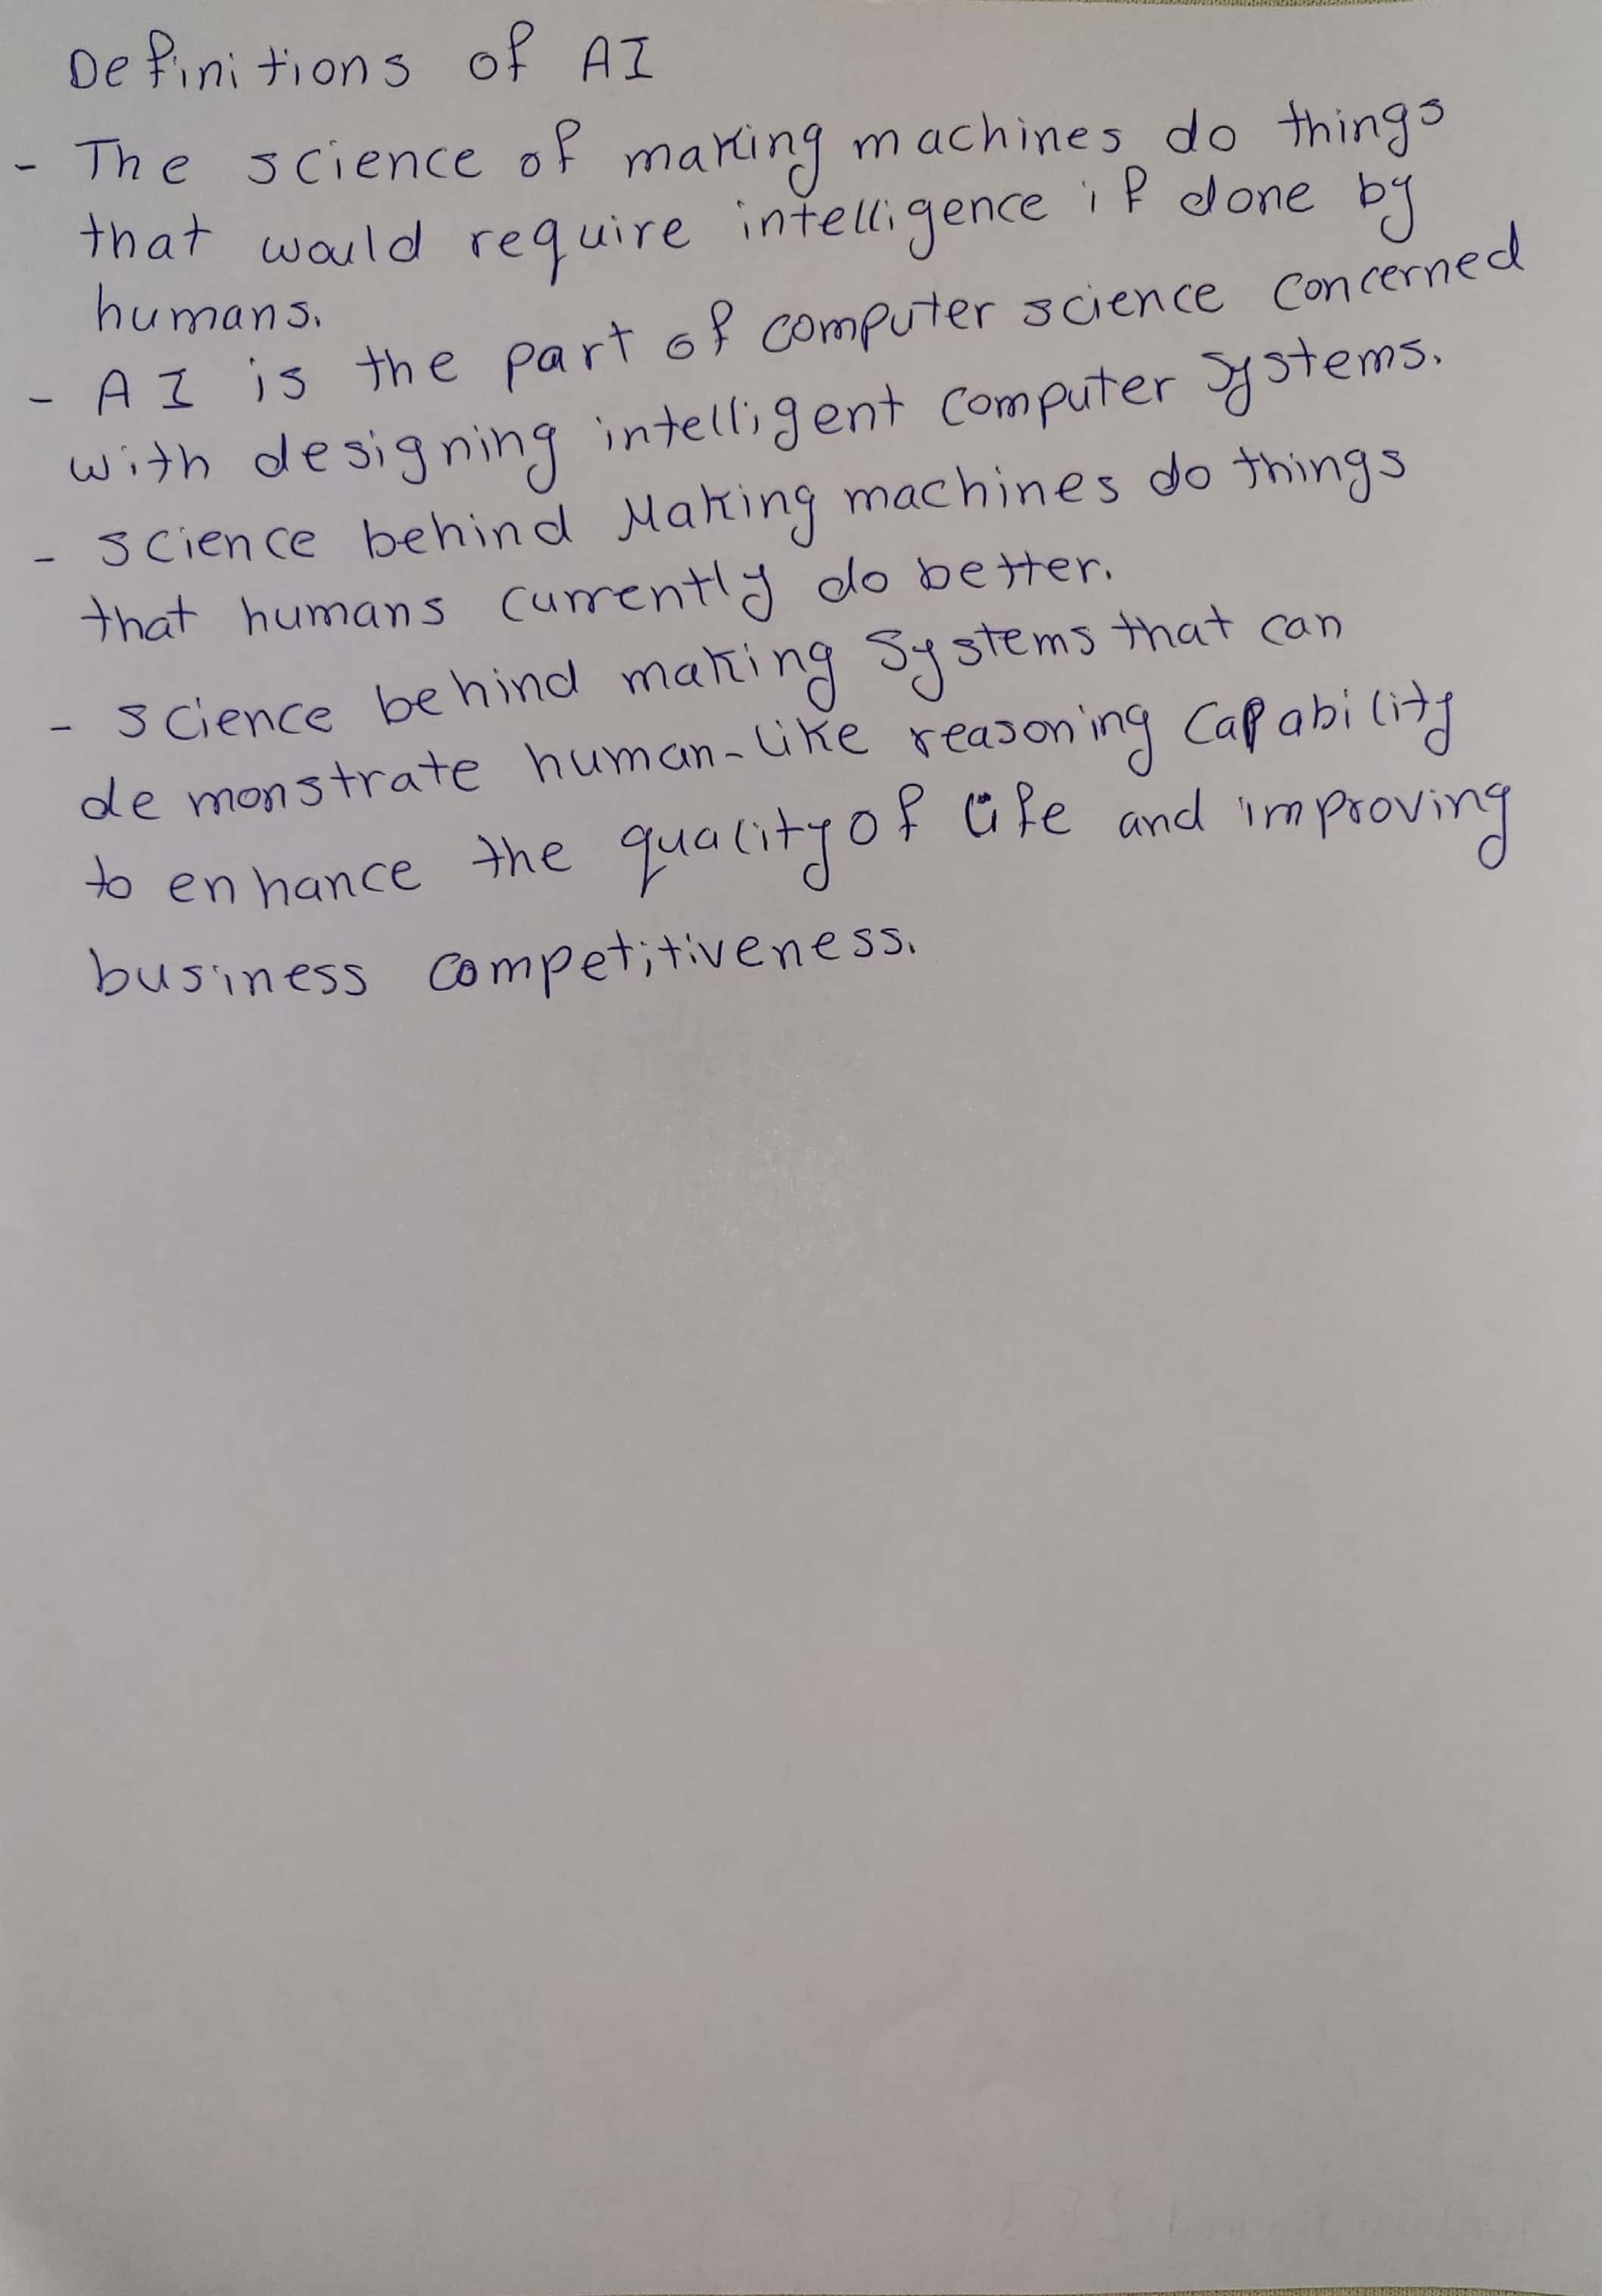 Definitions of AI
- The science of making machines do things
that would require intelligence if done by
humans.
- AI is the part of computer science concerned
with designing intelligent computer systems.
- science behind Making machines do things
that humans currently do better.
- science behind making systems that can
demonstrate human-like reasoning capability
to enhance the quality of life and improving
business competitiveness.